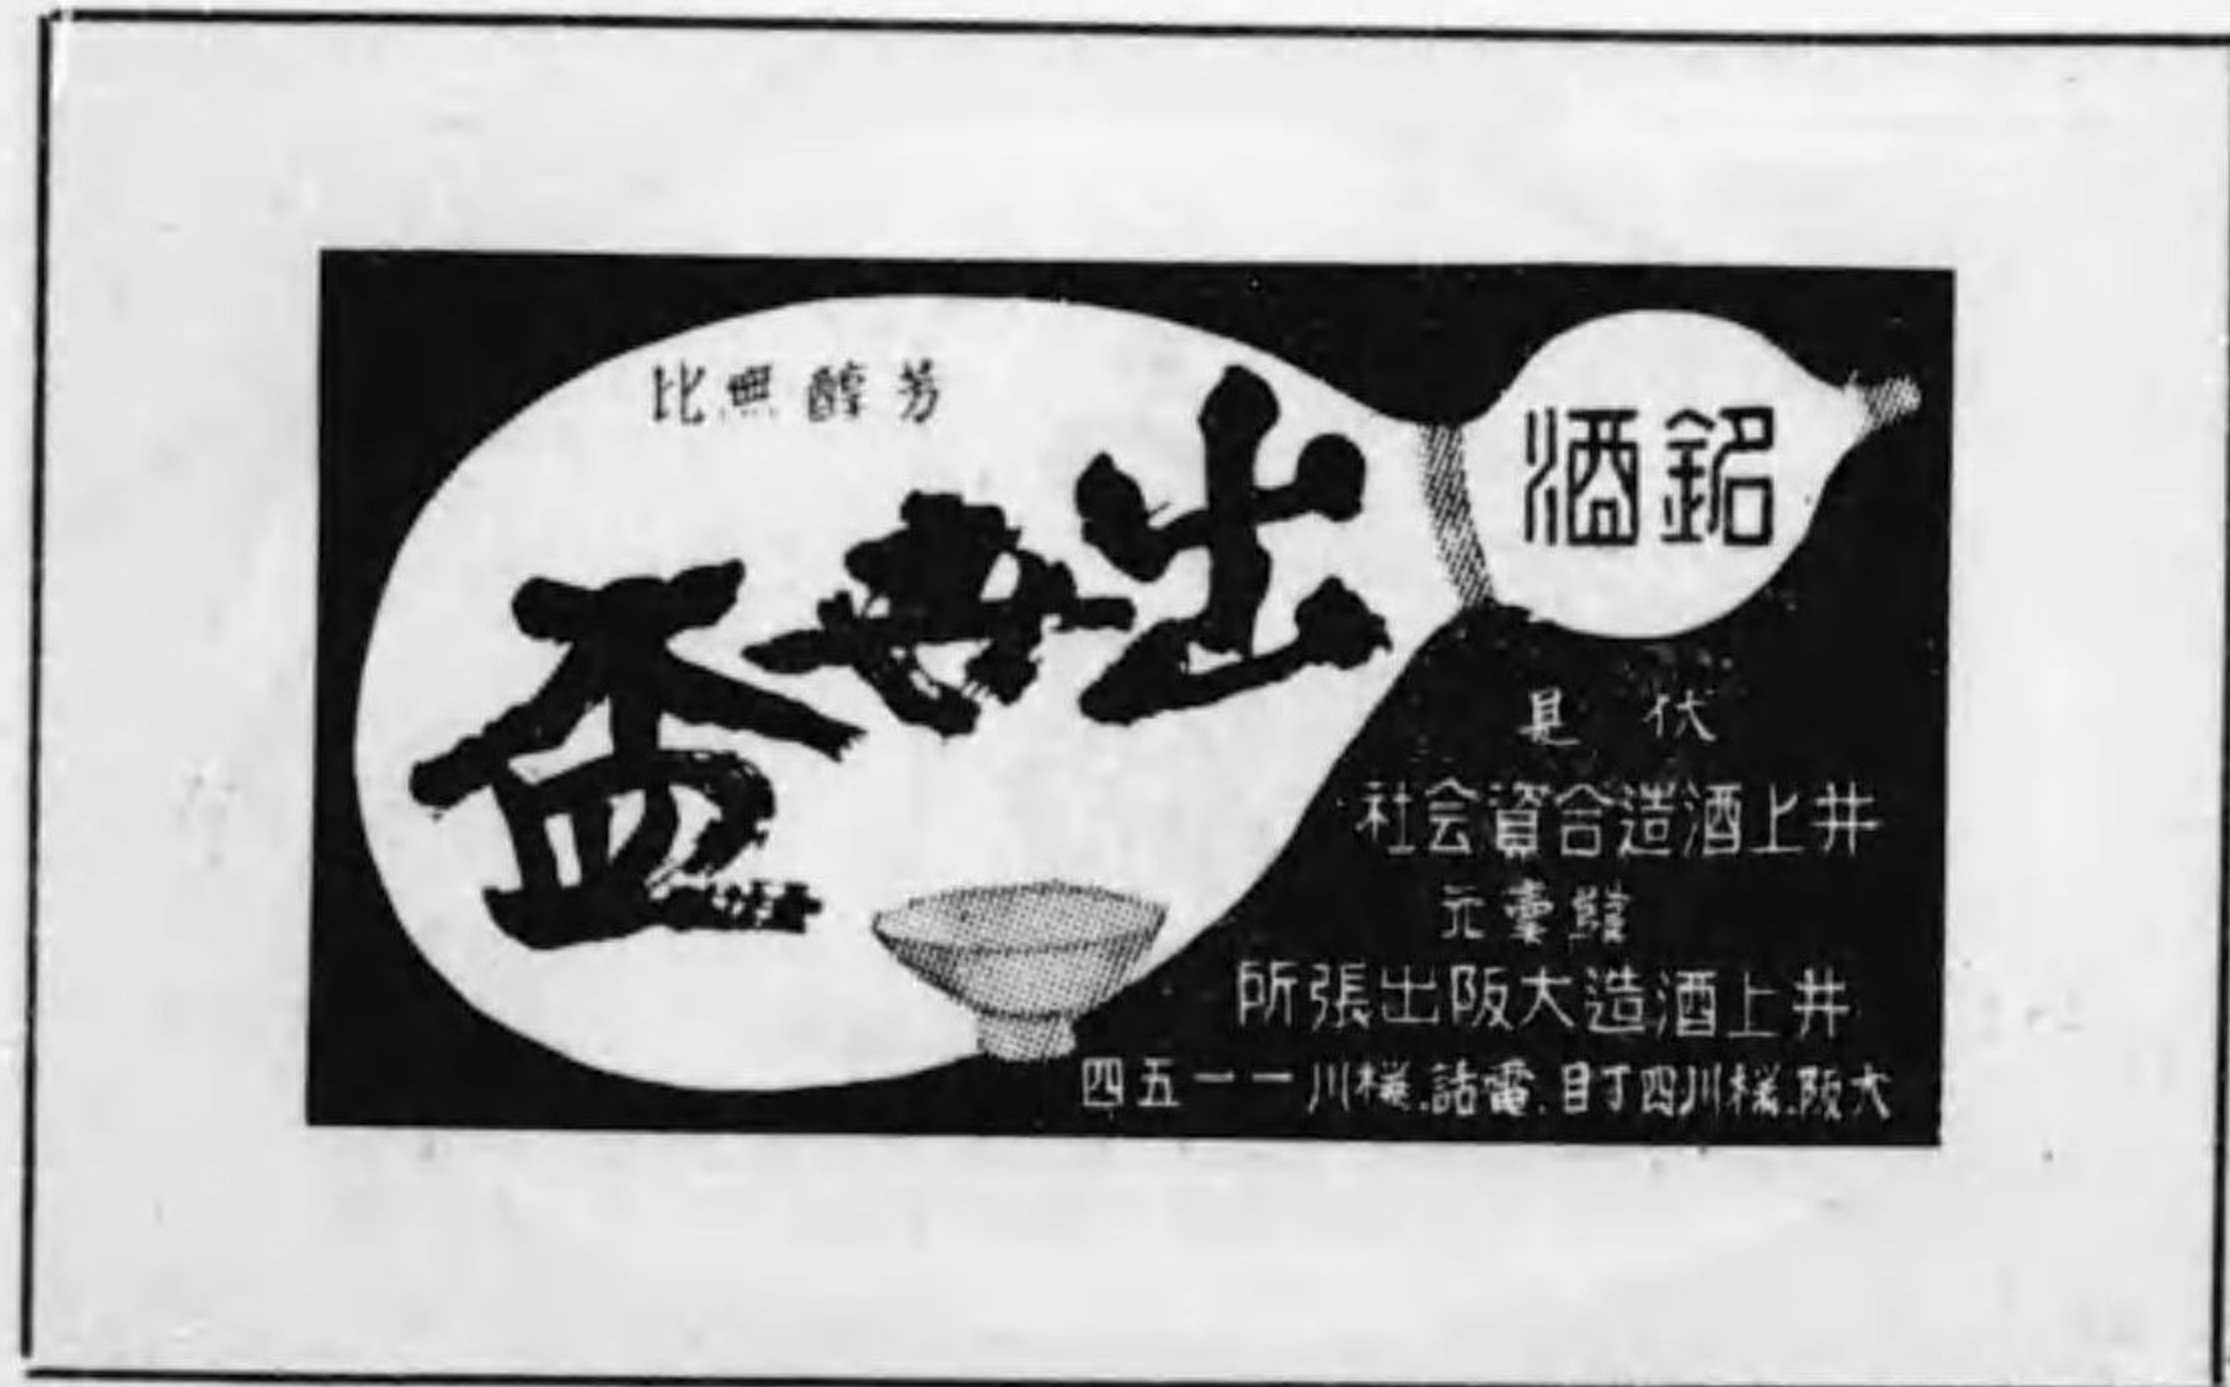 銘酒
芳醇無比
出世盃
伏見
井上酒造合資会社
發賣元
井上酒造大阪出張所
大阪.桜川四丁目.電話.桜川一一五四